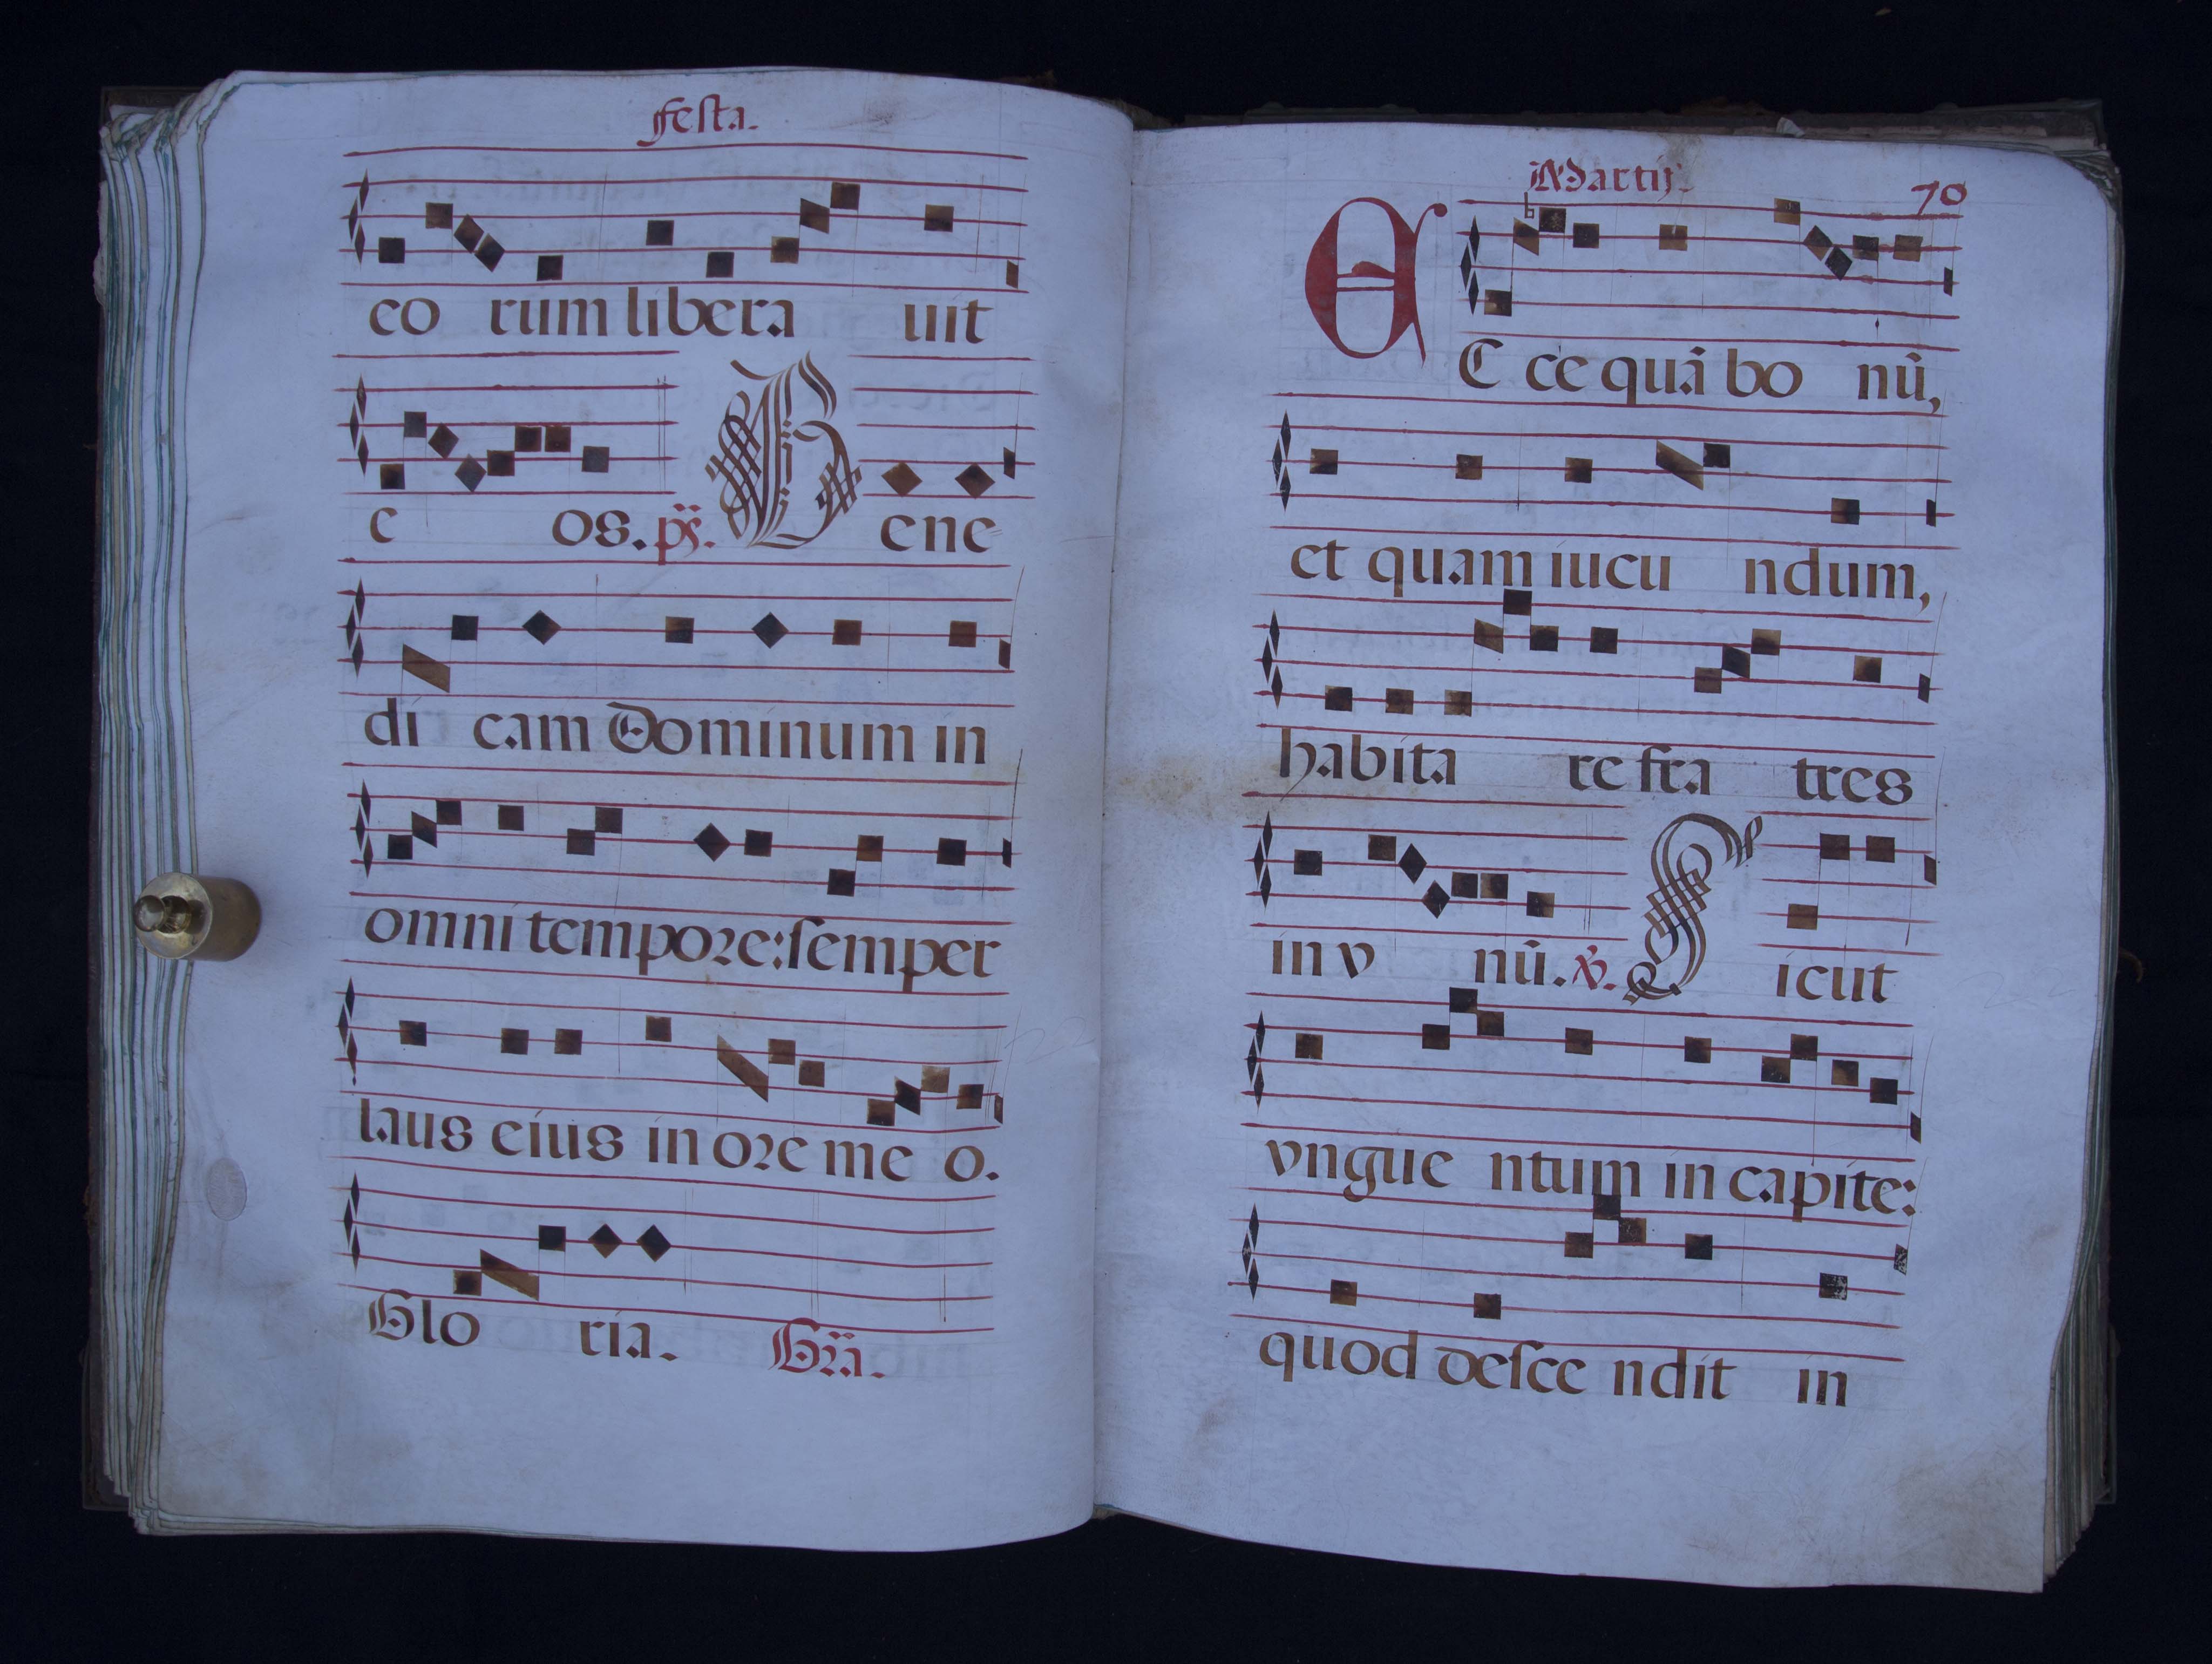 Festa.
co rum libera uit
e os. ps. Bene
di cam Dominum in
omni tempore: semper
laus eius in ore me o.
Glo ria. Gra.
Martij. 70
EC ce quā bo nū,
et quam iucu ndum,
habita re fra tres
in v nū. ℣. Sicut
vngue ntum in capite:
quod desce ndit in